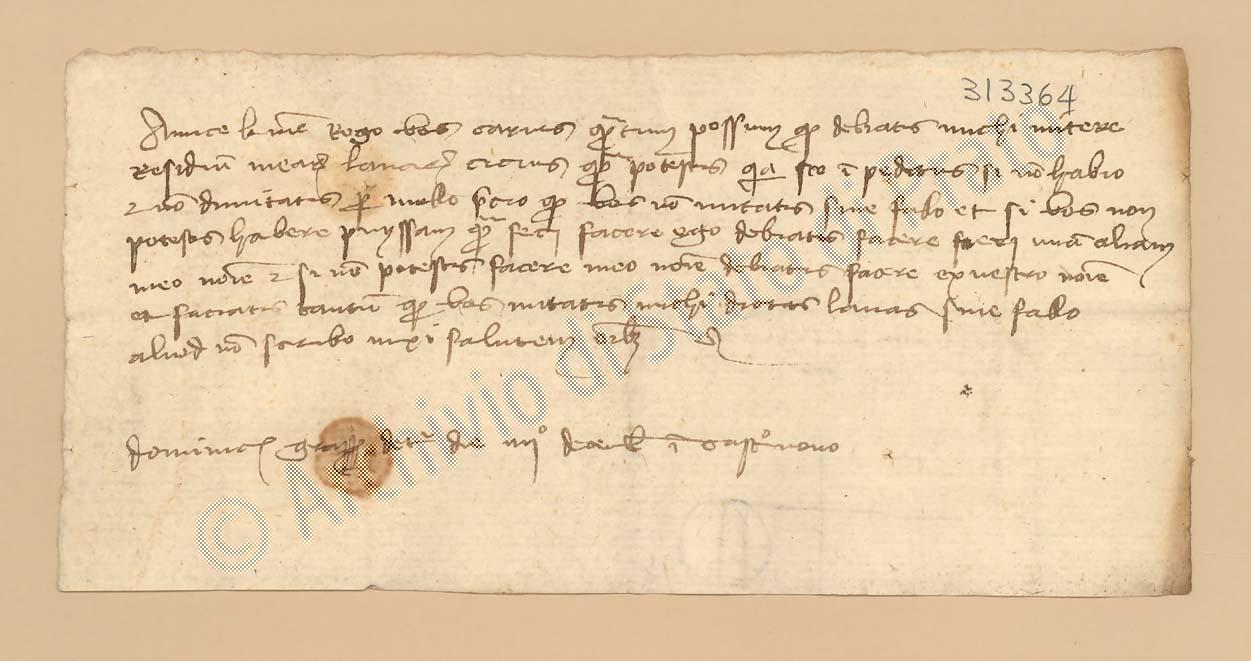 313364
Amice karme Rogo vos carius quatum possum quod debiatis michi mitere
Residuum mear lanar cicius quod potestis quia sto i peditus si no habio
no dimitatis pro modo quod vos no mitatis sine fallo et si vos non
potestis habere feci facere ego debiatis facere unam aliam
meo noie si no potestis facere meo noie debiatis facere ex vestro noie
et faciatis tantum quod vos mitatis michi dictas lanas sine fallo
aliud no scribo nixi salutem
die iiiº i Castº novo
© Archivio di Stato di Prato